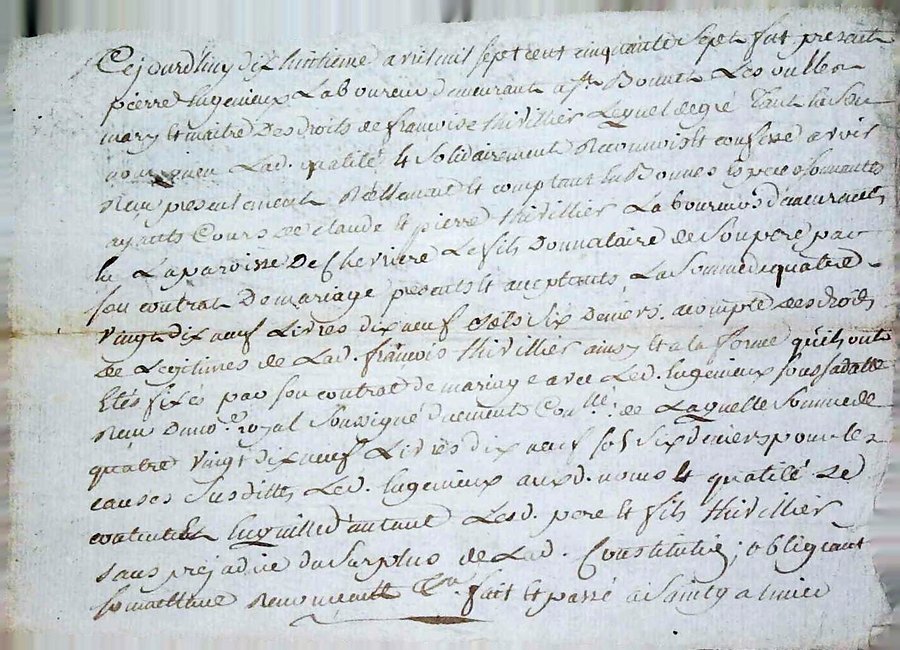 Cejourdhuy dix huitieme avril mil sept cent cinquante sept fut present
pierre Jugenieux Laboureur demeurant a st Bonnet Les oulles
mary et maitre des droits de françoise thivillier Lequel de gré tant en son
nom qu'en Lad. qualité et solidairement Reconnoist et confesse avoir
Reçu presentement Réellement et comptant en Bonnes especes sonnantes
ayants Cours de claude et pierre thivillier Laboureurs demeurants
en La paroisse De Cheviere Le fils Donnataire de Son pere par
son contrat De mariage presents et acceptants La Somme de quatre
vingt dix neuf Livres dix neuf sols Six deniers acompte des droits
De Legitimes de Lad. françoise thivillier ainsy et a la forme qu'ils ont
Etés fixés par son contrat de mariage avec Led. Jugenieux sous sa datte
Reçu du no.re royal Soussigné duement Con.llé de Laquelle Somme de
quatre vingt dix neuf Livres dix neuf sols Six deniers pour les
causes Susdittes Led. Jugenieux auxd. noms et qualité Se
contente et En quitte d'autant Lesd. pere et fils thivillier
sans prejudice du Surplus de Lad. Constitution; obligeant
soumettant Renonceant &a. fait et passé a Saint galmier